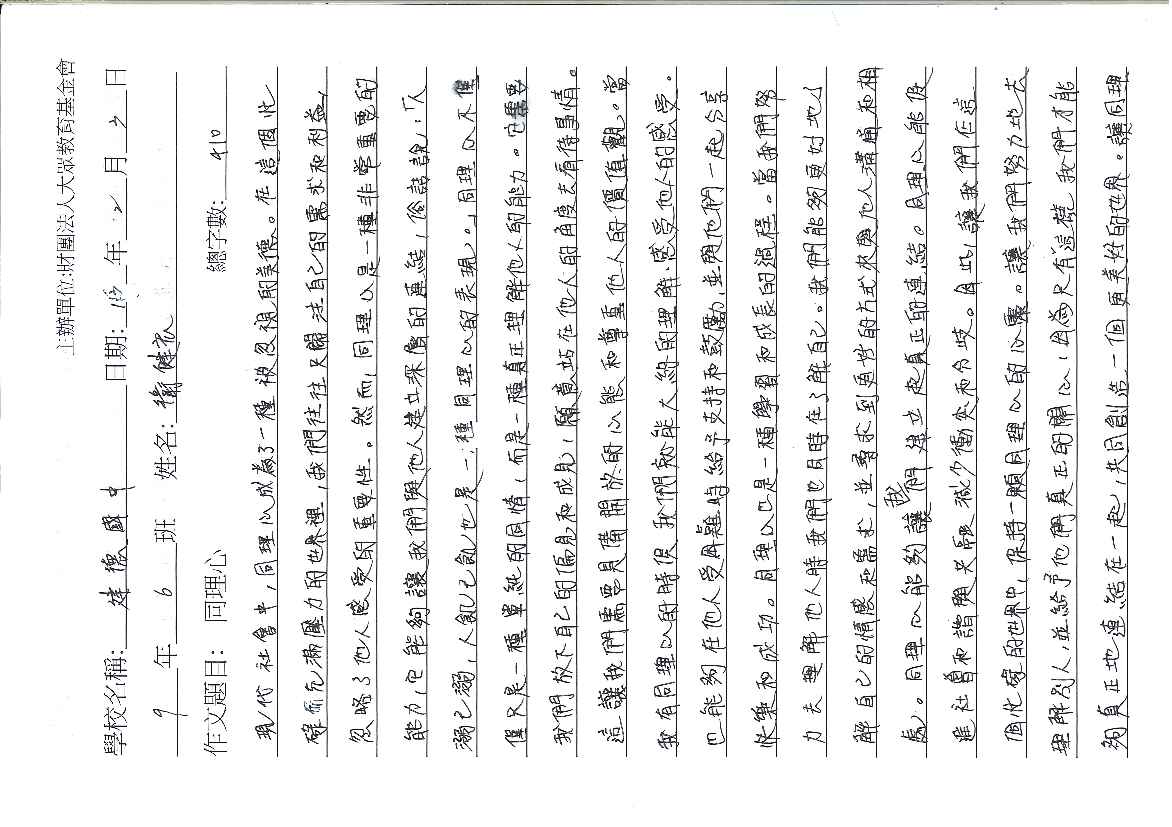 主辦單位:財團法人大眾教育基金會
學校名稱: 建德國中 日期: 113 年 12 月 2 日
9 年 6 班 姓名: 徐健 總字數: 410
作文題目: 同理心
現代社會中，同理心成為了一種被忽視的美德。在這個忙
碌而充滿壓力的世界裡，我們往往只關注自己的需求和利益，
忽略了他人感受的重要性。然而，同理心是一種非常重要的
能力，它能夠讓我們與他人建立深層的連結，俗話說：「人
溺己溺，人飢己飢也是一種同理心的表現。」同理心不僅
僅只是一種單純的同情，而是一種真正理解他人的能力。它需要
我們放下自己的偏見和成見，願意站在他人的角度去看待事情。
這讓我們需要具備開放的心態和尊重他人的價值觀。當
我有同理心的時候，我們就能大約的理解、感受他人的感受。
也能夠在他人受困難時給予支持和鼓勵，並與他們一起分享
快樂和成功。同理心也是一種學習和成長的過程。當我們努
力去理解他人時我們也同時在了解自己。我們能夠更好地了
解自己的情感和需求，並尋求到適當的方式來與他人溝通和相
處。同理心能夠讓我們建立起真正的連結。同理心能促
進社會和諧與共融減少衝突和分歧。因此，讓我們在這
個忙碌的世界中，保持一顆同理心的心靈。讓我們努力地去
理解別人，並給予他們真正的關心，因為只有這樣，我們才能
夠真正地連結在一起，共同創造一個更美好的世界。讓同理